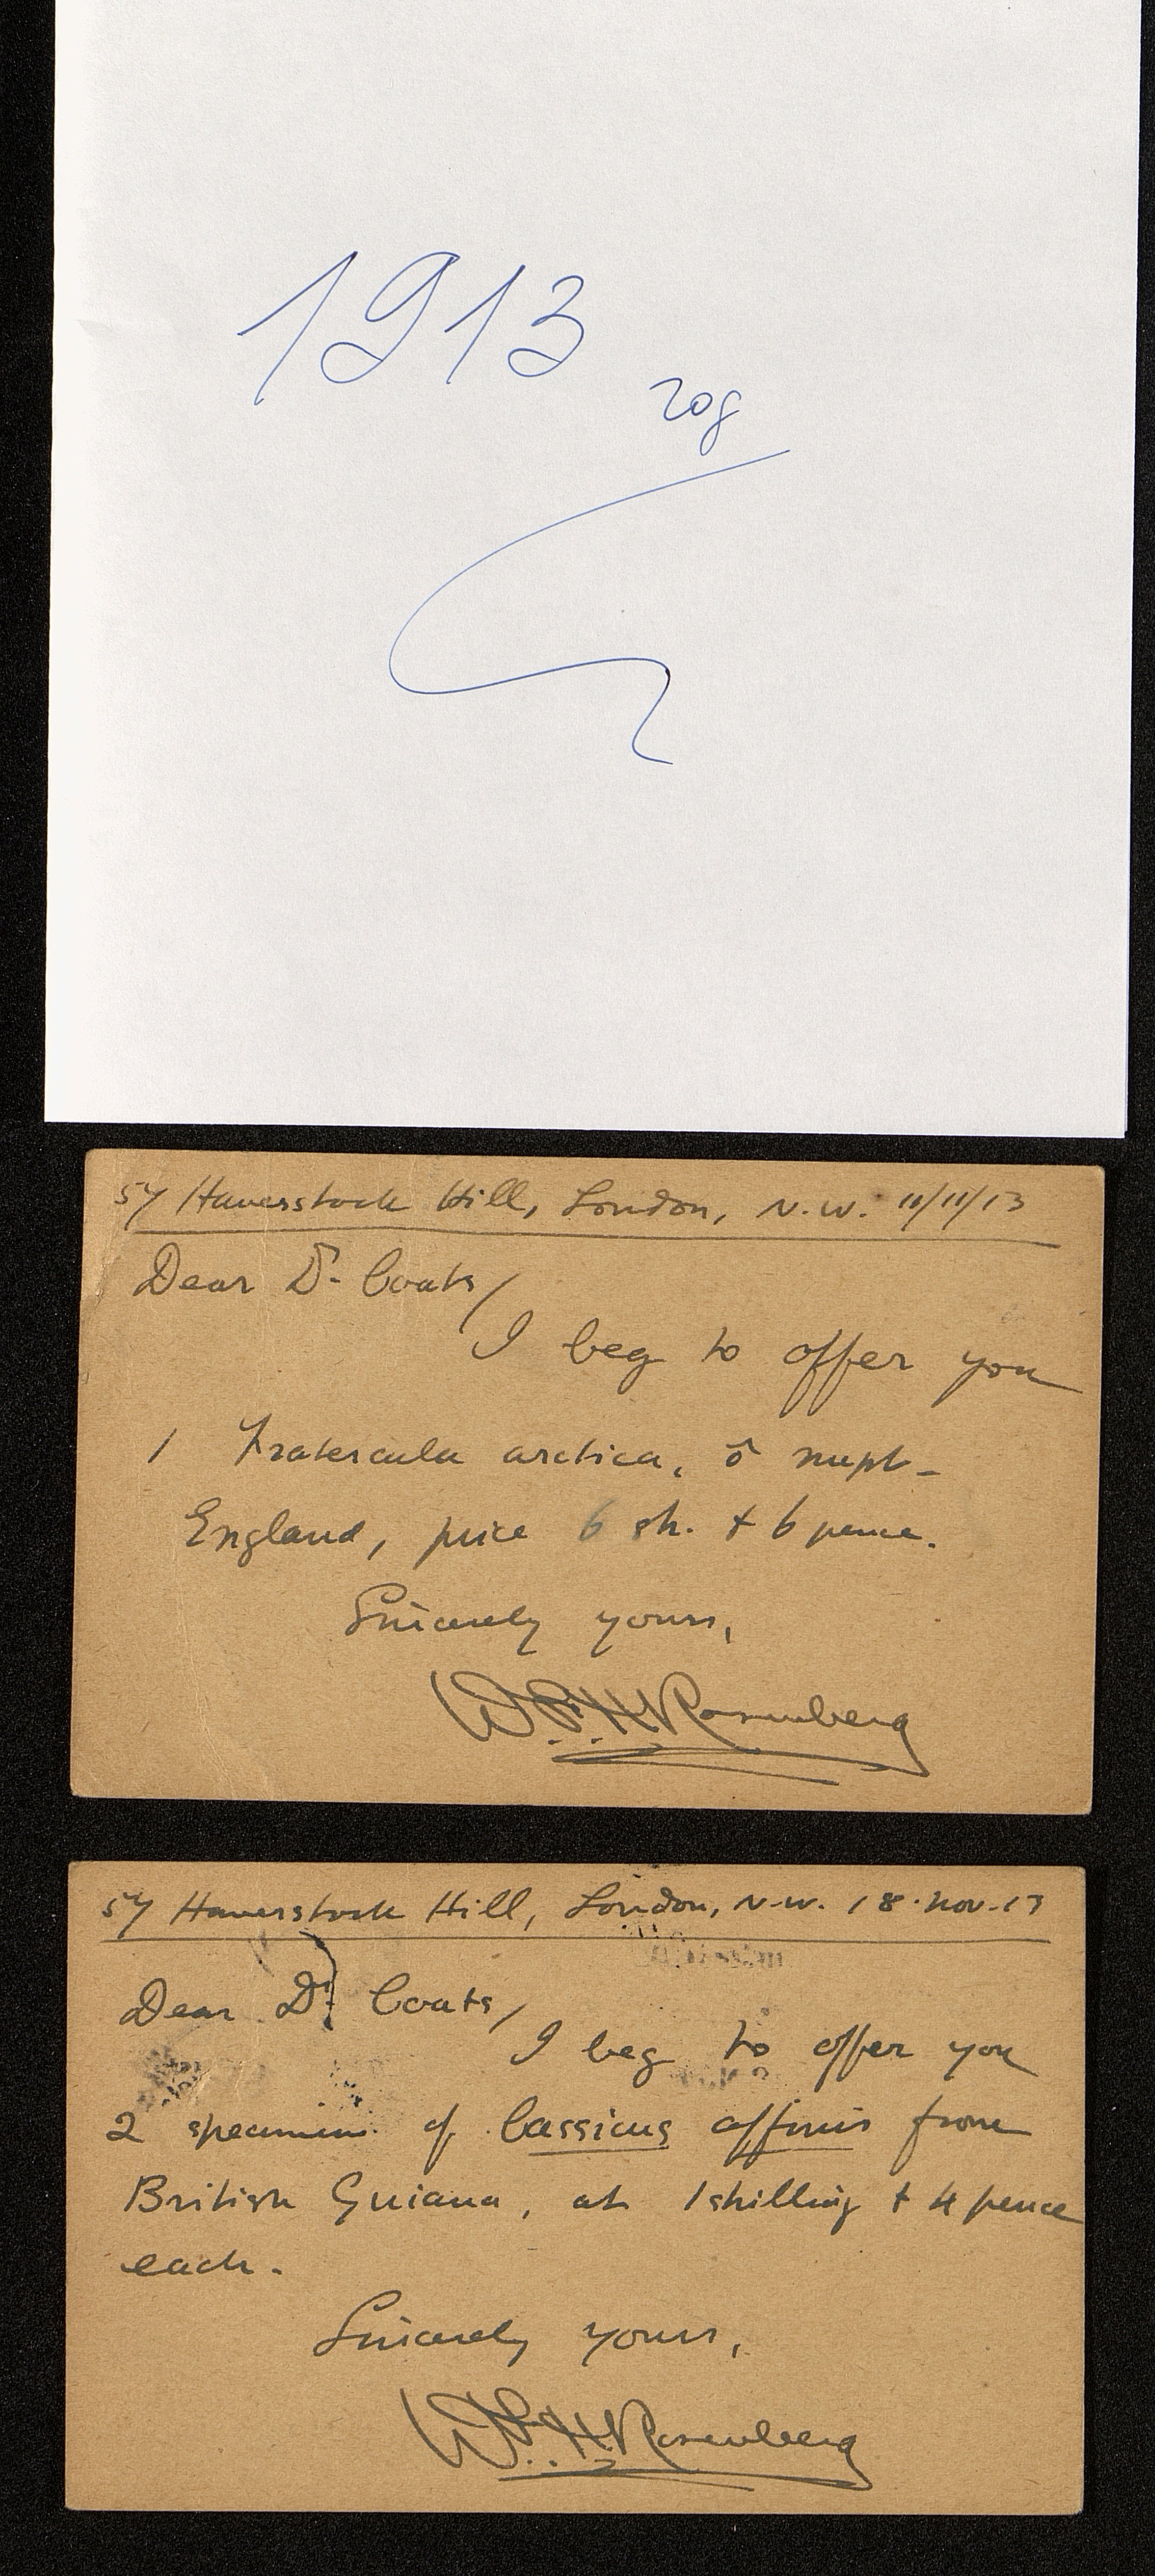 1913
год
57 Haverstock Hill, London, N.W. 11/11/13
Dear Dr. Coats,
I beg to offer you
1 Fratercula arctica, ♂ nupt-
England, price 6 sh. + 6 pence.
Sincerely yours,
W.F.H. Rosenberg
57 Haverstock Hill, London, N.W. 18. Nov. 13
Dear Dr. Coats,
I beg to offer you
2 specimens of Cassicus affinis from
British Guiana, at 1 shilling + 4 pence
each.
Sincerely yours,
W.F.H. Rosenberg